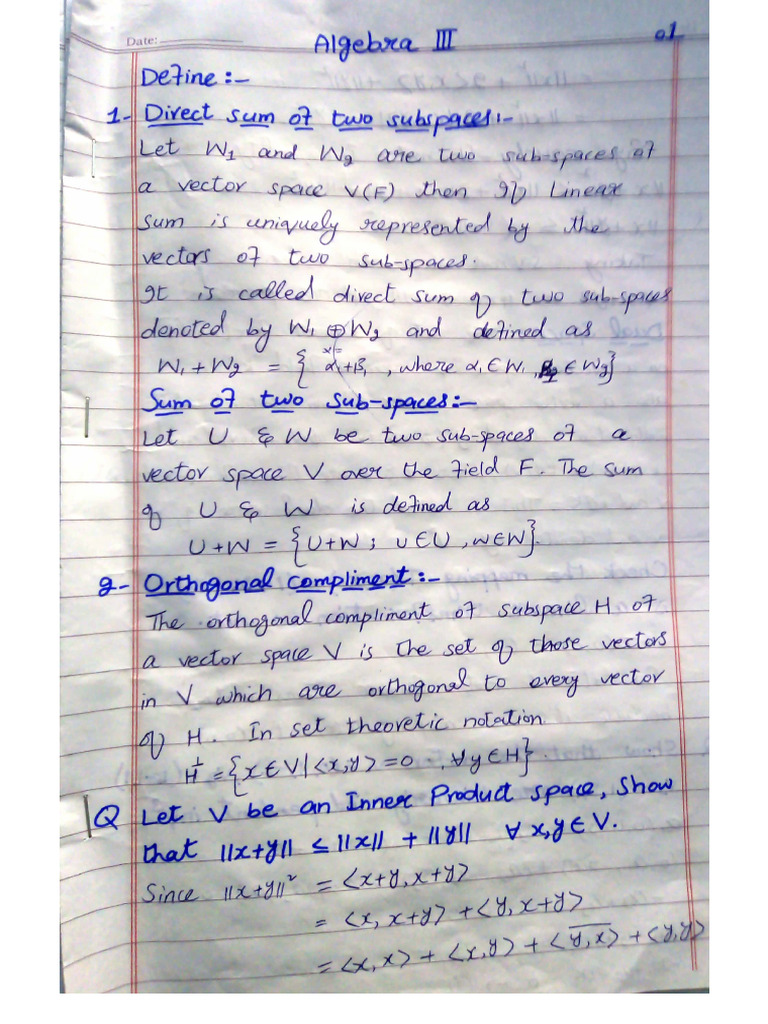 Date:
Algebra III
01
Define :-
1- Direct sum of two subspaces:-
Let W₁ and W₂ are two sub-spaces of
a vector space V(F) then if Linear
sum is uniquely represented by the
vectors of two sub-spaces.
It is called direct sum of two sub-spaces
denoted by W₁ ⊕ W₂ and defined as
W₁ + W₂ = { α₁+β₁ , where α₁ ∈ W₁ , β₂ ∈ W₂}
Sum of two Sub-spaces:-
Let U & W be two sub-spaces of a
vector space V over the field F. The sum
of U & W is defined as
U+W = {U+W ; U∈U , w∈W}.
2- Orthogonal compliment:-
The orthogonal compliment of subspace H of
a vector space V is the set of those vectors
in V which are orthogonal to every vector
of H. In set theoretic notation
H^⊥ = {x∈V | <x,y> = 0 , ∀y∈H}.
Q Let V be an Inner Product space, Show
that ||x+y|| ≤ ||x|| + ||y|| ∀ x,y ∈ V.
Since ||x+y||² = <x+y, x+y>
= <x, x+y> + <y, x+y>
= <x,x> + <x,y> + <y̅,̅x̅> + <y,y>